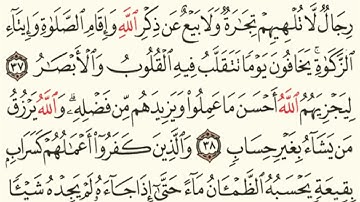 رِجَالٌ لَّا تُلْهِيهِمْ تِجَٰرَةٌ وَلَا بَيْعٌ عَن ذِكْرِ ٱللَّهِ وَإِقَامِ ٱلصَّلَوٰةِ وَإِيتَآءِ
ٱلزَّكَوٰةِ يَخَافُونَ يَوْمًا تَتَقَلَّبُ فِيهِ ٱلْقُلُوبُ وَٱلْأَبْصَٰرُ ٣٧
لِيَجْزِيَهُمُ ٱللَّهُ أَحْسَنَ مَا عَمِلُوا۟ وَيَزِيدَهُم مِّن فَضْلِهِۦ وَٱللَّهُ يَرْزُقُ
مَن يَشَآءُ بِغَيْرِ حِسَابٍ ٣٨ وَٱلَّذِينَ كَفَرُوٓا۟ أَعْمَٰلُهُمْ كَسَرَابٍ
بِقِيعَةٍ يَحْسَبُهُ ٱلظَّمْـَٔانُ مَآءً حَتَّىٰٓ إِذَا جَآءَهُۥ لَمْ يَجِدْهُ شَيْـًٔا